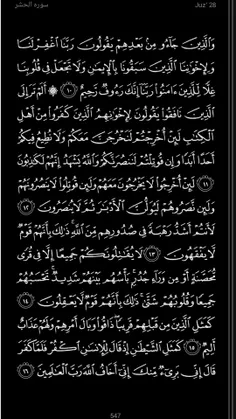 سورة الحشر Juz' 28
وَالَّذِينَ جَاءُو مِنْ بَعْدِهِمْ يَقُولُونَ رَبَّنَا اغْفِرْ لَنَا
وَلِإِخْوَانِنَا الَّذِينَ سَبَقُونَا بِالْإِيمَانِ وَلَا تَجْعَلْ فِي قُلُوبِنَا
غِلًّا لِلَّذِينَ ءَامَنُوا رَبَّنَا إِنَّكَ رَءُوفٌ رَحِيمٌ ١٠ ۞ أَلَمْ تَرَ إِلَى
الَّذِينَ نَافَقُوا يَقُولُونَ لِإِخْوَانِهِمُ الَّذِينَ كَفَرُوا مِنْ أَهْلِ
الْكِتَابِ لَئِنْ أُخْرِجْتُمْ لَنَخْرُجَنَّ مَعَكُمْ وَلَا نُطِيعُ فِيكُمْ
أَحَدًا أَبَدًا وَإِنْ قُوتِلْتُمْ لَنَنْصُرَنَّكُمْ وَاللَّهُ يَشْهَدُ إِنَّهُمْ لَكَاذِبُونَ
١١ لَئِنْ أُخْرِجُوا لَا يَخْرُجُونَ مَعَهُمْ وَلَئِنْ قُوتِلُوا لَا يَنْصُرُونَهُمْ
وَلَئِنْ نَصَرُوهُمْ لَيُوَلُّنَّ الْأَدْبَارَ ثُمَّ لَا يُنْصَرُونَ ١٢
لَأَنْتُمْ أَشَدُّ رَهْبَةً فِي صُدُورِهِمْ مِنَ اللَّهِ ذَلِكَ بِأَنَّهُمْ قَوْمٌ
لَا يَفْقَهُونَ ١٣ لَا يُقَاتِلُونَكُمْ جَمِيعًا إِلَّا فِي قُرًى
مُحَصَّنَةٍ أَوْ مِنْ وَرَاءِ جُدُرٍ بَأْسُهُمْ بَيْنَهُمْ شَدِيدٌ تَحْسَبُهُمْ
جَمِيعًا وَقُلُوبُهُمْ شَتَّى ذَلِكَ بِأَنَّهُمْ قَوْمٌ لَا يَعْقِلُونَ ١٤
كَمَثَلِ الَّذِينَ مِنْ قَبْلِهِمْ قَرِيبًا ذَاقُوا وَبَالَ أَمْرِهِمْ وَلَهُمْ عَذَابٌ
أَلِيمٌ ١٥ كَمَثَلِ الشَّيْطَانِ إِذْ قَالَ لِلْإِنْسَانِ اكْفُرْ فَلَمَّا كَفَرَ
قَالَ إِنِّي بَرِيءٌ مِنْكَ إِنِّي أَخَافُ اللَّهَ رَبَّ الْعَالَمِينَ ١٦
547